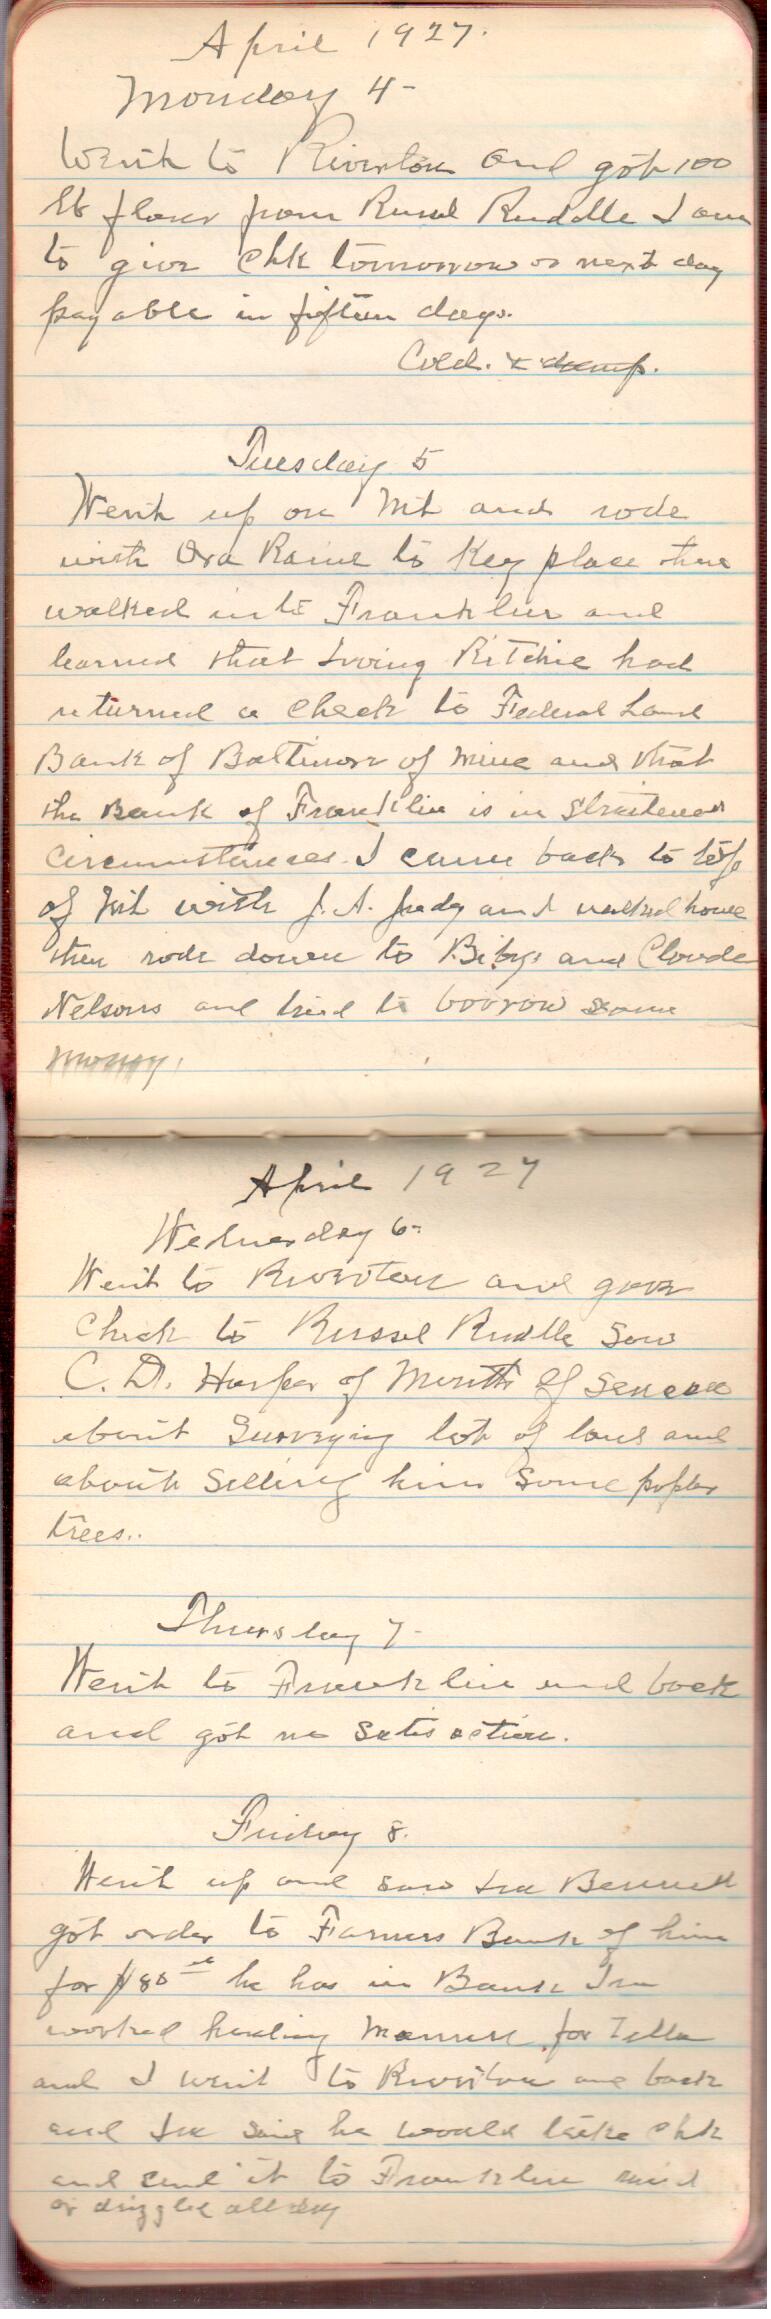 April 1927.
Monday 4-
Went to Riverton and got 100
lb flour from Russel Ruddle I am
to give chk tomorrow or next day
payable in fifteen days.
Cold. & damp.
Tuesday 5
Went up on Mt and rode
with Ora Raine to Key place then
walked into Franklin and
learned that Irving Ritchie had
returned a check to Federal Land
Bank of Baltimore of mine and that
the Bank of Franklin is in Straitened
Circumstances. I came back to top
of Mt with J. A. Judy and walked home
then rode down to Bibys and Claude
Nelsons and tried to boorow some
money.
April 1927
Wednesday 6-
Went to Riverton and gave
Check to Russel Ruddle Saw
C. D. Harper of Mouth of Seneca
about Surveying lot of land and
about Selling him Some poplar
trees..
Thursday 7-
Went to Franklin and back
and got no Satisaction.
Friday 8.
Went up and saw Ira Bennett
got order to Farmers Bank of him
for $80 he has in Bank Ira
worked hauling Manure for Zella
and I went to Riverton and back
and Ira said he would take chk
and send it to Franklin raind
or drizzled all day